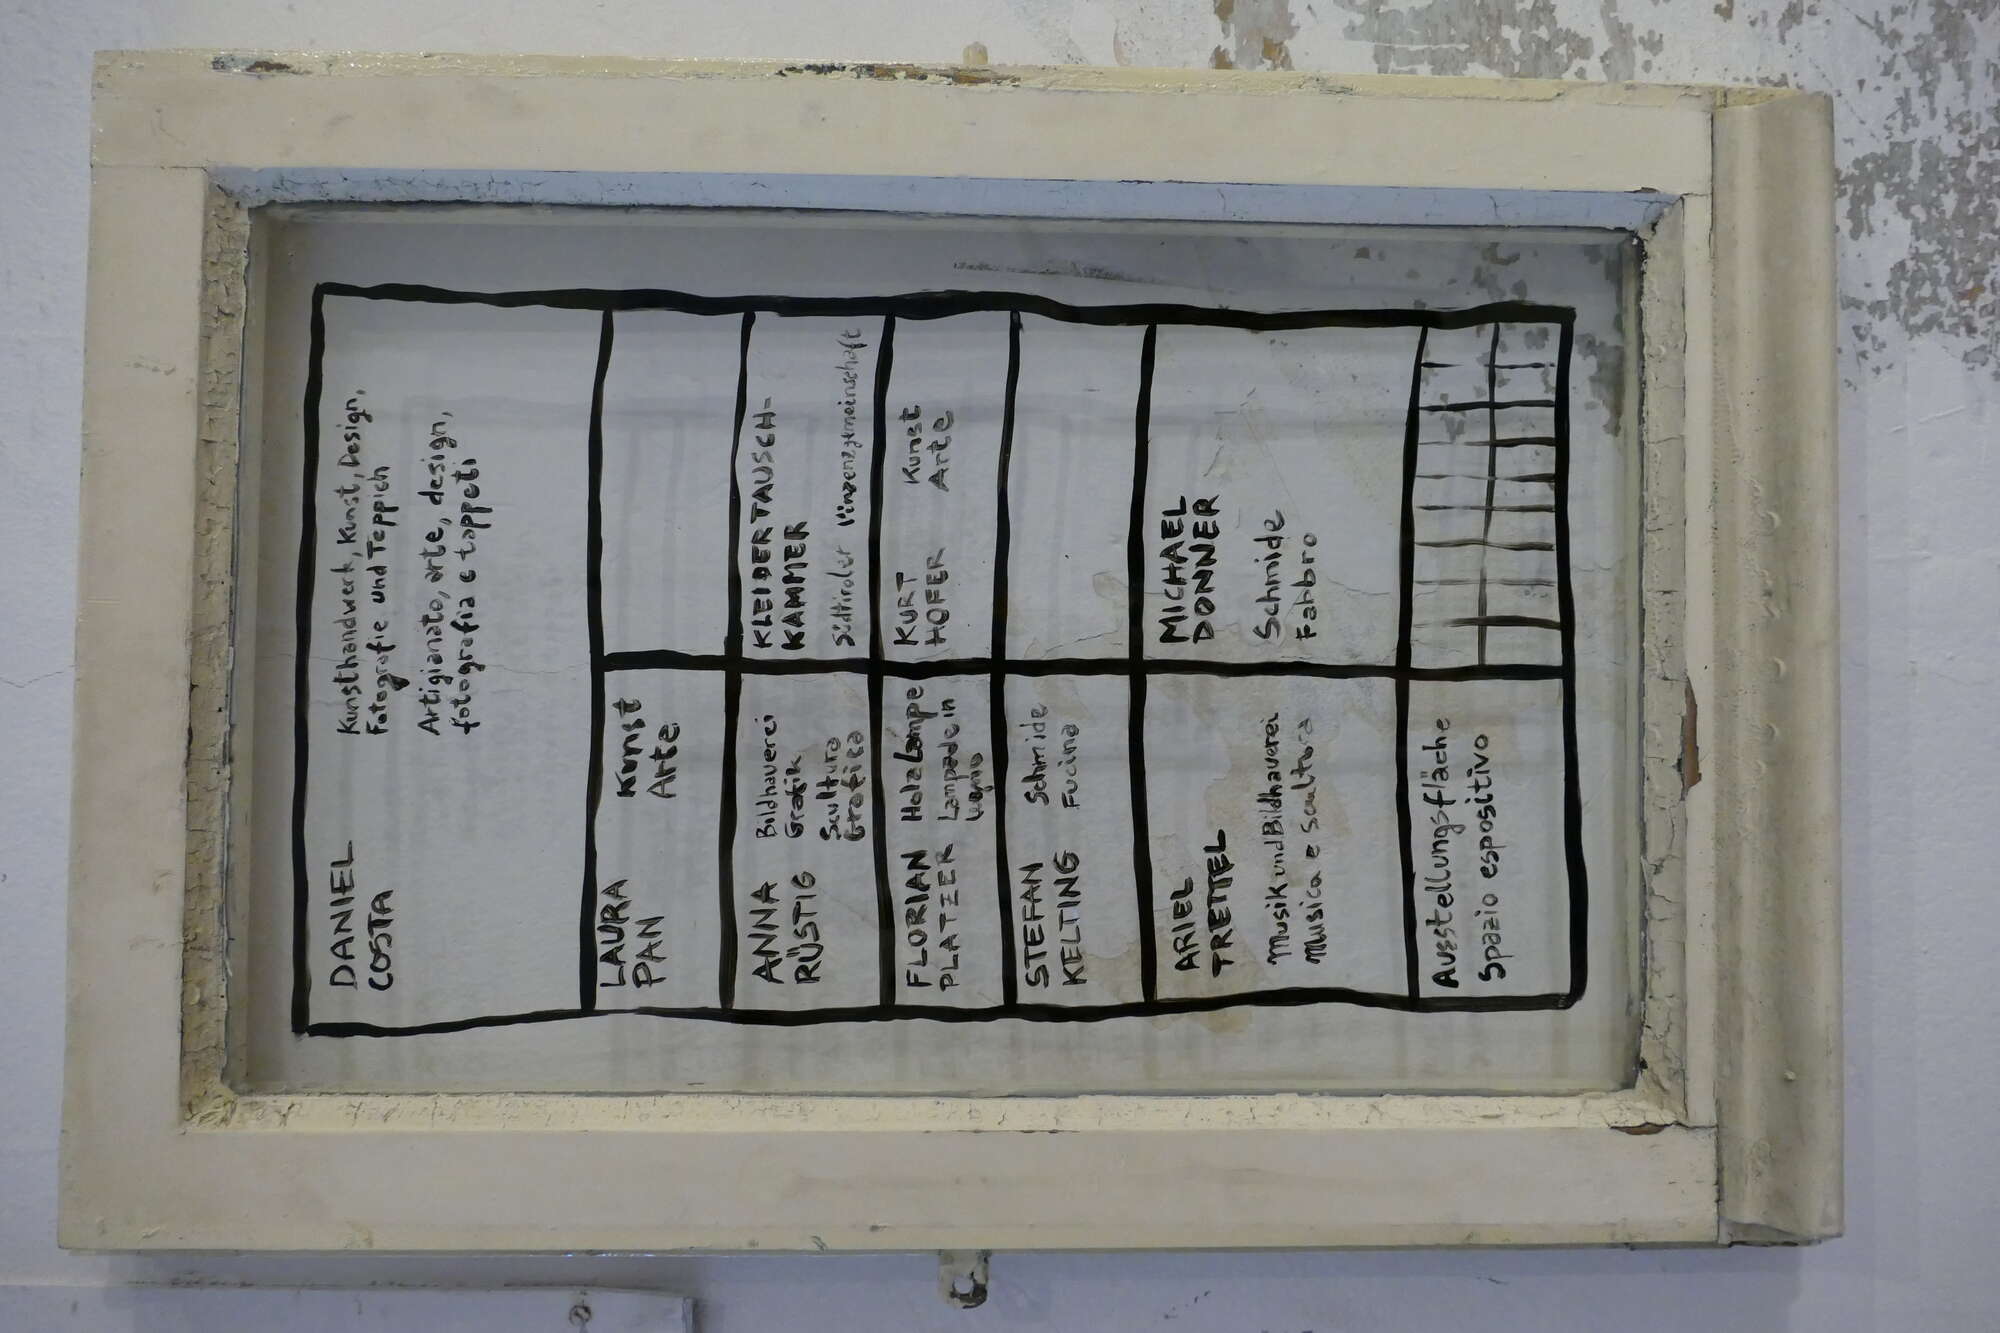 DANIEL
COSTA
Kunsthandwerk, Kunst, Design,
Fotografie und Teppich
Artigianato, arte, design,
fotografia e tappeti
LAURA
PAN
Kunst
Arte
ANNA
RÜSTIG
Bildhauerei
Grafik
Scultura
Grafica
KLEIDERTAUSCH-
KAMMER
Südtiroler Vinzenzgemeinschaft
FLORIAN
PLATZER
Holz Lampe
Lampade in
legno
KURT
HOFER
Kunst
Arte
STEFAN
KELTING
Schmide
Fucina
ARIEL
TRETTEL
Musik und Bildhauerei
Musica e Scultura
MICHAEL
DONNER
Schmide
Fabbro
Ausstellungsfläche
Spazio espositivo